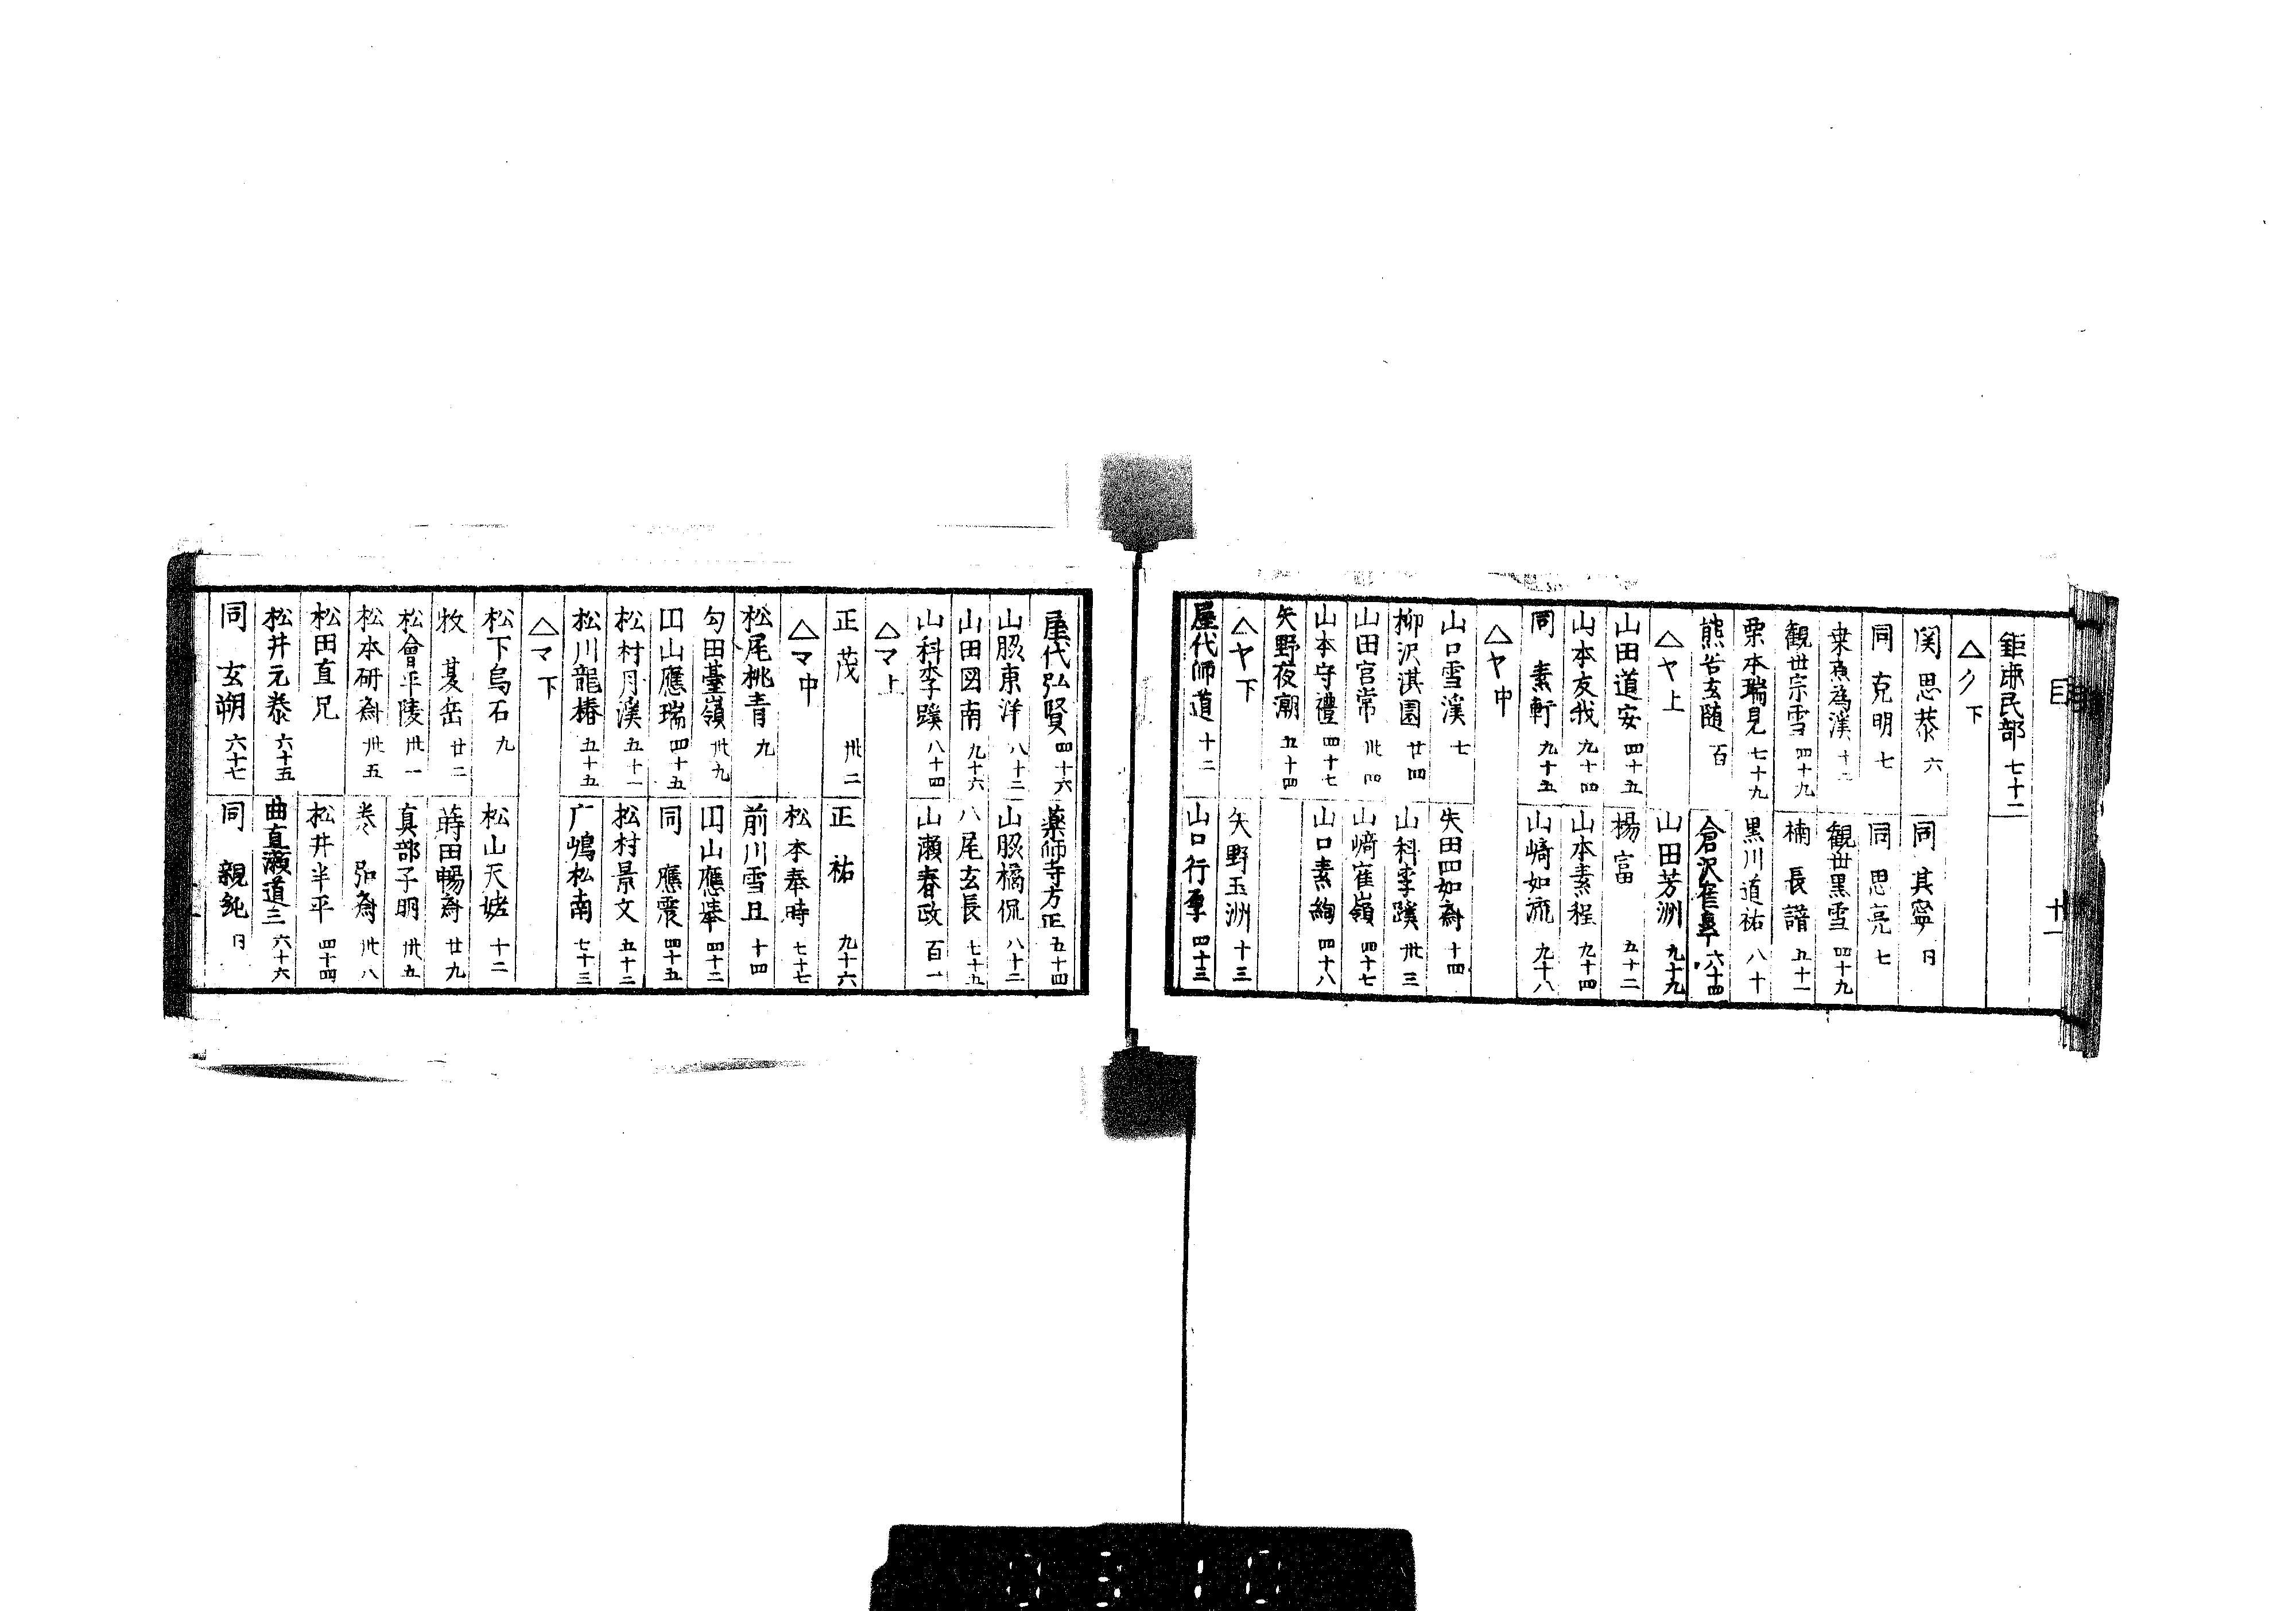 目 十一
鉅鹿民部 七十二
△ク下
関思恭 六 同其寧 日
同克明 七 同思亮 七
為溪 十二 観世黒雪 四十九
観世宗雪 四十九 楠長諳 五十一
栗本瑞見 七十九 黒川道祐 八十
熊谷玄随 百 倉沢 六十四
△ヤ上 山田芳洲 九十九
山田道安 四十五 楊富 五十二
山本友我 九十四 山本素程 九十四
同素軒 九十五 山﨑如流 九十八
△ヤ中
山口雪溪 七 矢田四如齋 十四
柳沢淇園 廿四 山科李蹊 卅三
山田宮常 卅四 山﨑寉嶺 四十七
山本守禮 四十七 山口素絢 四十八
矢野夜潮 五十四
△ヤ下 矢野玉洲 十三
屋代師道 十二 山口行厚 四十三
屋代弘賢 四十六 薬師寺方正 五十四
山脇東洋 八十二 山脇橘侃 八十二
山田図南 九十六 八尾玄長 七十五
山科李蹊 八十四 山瀬春政 百一
△マ上
正茂 卅二 正祐 九十六
△マ中 松本奉時 七十七
松尾桃青 九 前川雪且 十四
勾田臺嶺 卅九 円山應挙 四十二
円山應瑞 四十五 同應震 四十五
松村月溪 五十一 松村景文 五十二
松川龍椿 五十五 广嶋松南 七十三
△マ下
松下烏石 九 松山天姥 十二
牧夏岳 廿二 蒔田暢齋 廿九
松會平陵 卅一 真部子明 卅五
松本研齋 卅五 巻弘齋 卅八
松田直兄 松井半平 四十四
松井元泰 六十五 曲直瀬道三 六十六
同玄朔 六十七 同親純 日